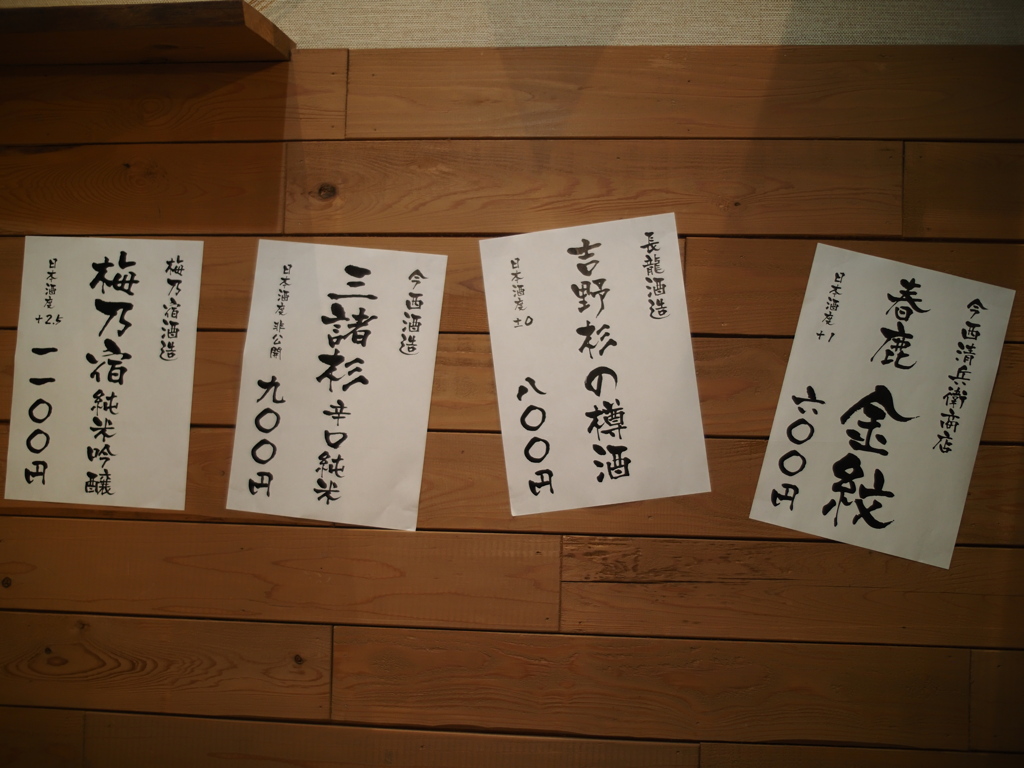 今西清兵衛商店
春鹿 金紋
日本酒度 +1
六〇〇円
長龍酒造
吉野杉の樽酒
日本酒度 ±0
八〇〇円
今西酒造
三諸杉 辛口純米
日本酒度 非公開
九〇〇円
梅乃宿酒造
梅乃宿 純米吟醸
日本酒度 +2.5
一一〇〇円